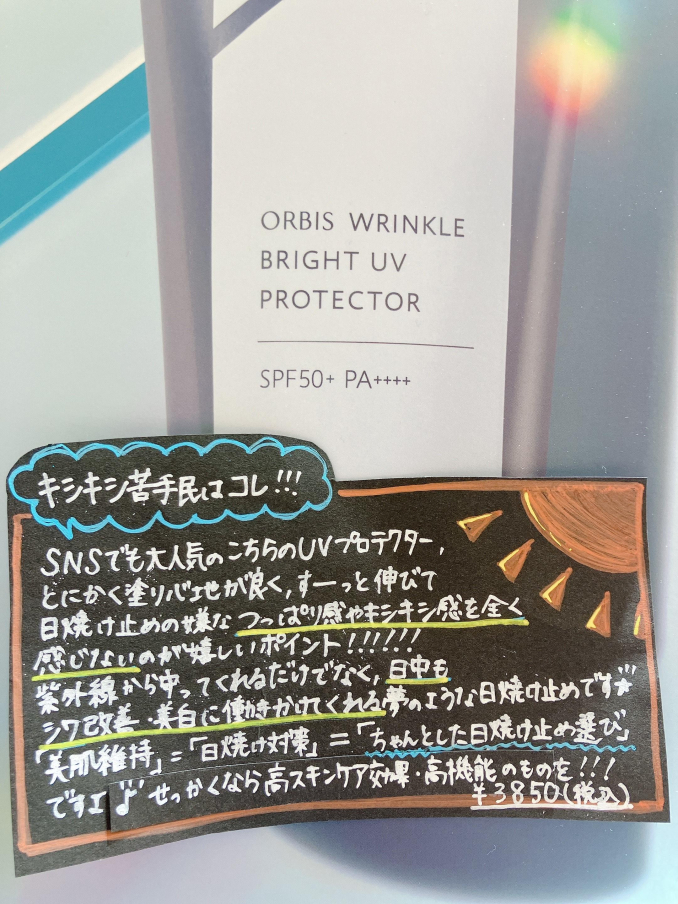 ORBIS WRINKLE
BRIGHT UV
PROTECTOR
SPF50+ PA++++
キシキシ苦手民はコレ!!!
SNSでも大人気のこちらのUVプロテクター,
とにかく塗りバエせが良く,すーっと伸びて
日焼け止めの嫌なつっぱり感やキシキシ感を全く
感じないのが嬉しいポイント!!!!!!
紫外線から守ってくれるだけでなく,日中も
シワ改善・美白に働きかけてくれる夢のような日焼け止めです☆
「美肌維持」=「日焼け対策」=「ちゃんとした日焼け止め選び」
ですよ♪せっかくなら高スキンケア効果・高機能のものを!!!
¥3850(税込)